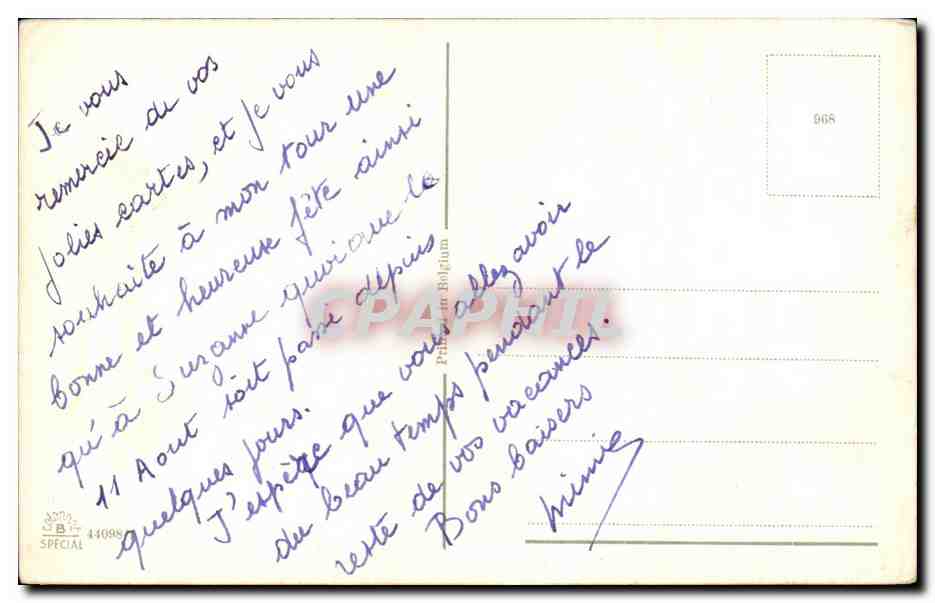 Je vous
remercie de vos
jolies cartes, et je vous
souhaite à mon tour une
bonne et heureuse fête ainsi
qu'à Suzanne quoique le
11 Aout soit passé depuis
quelques jours.
J'espère que vous allez avoir
du beau temps pendant le
reste de vos vacances.
Bons baisers
Mimie
Printed in Belgium
968
CPAPHIL
B
SPÉCIAL
44098